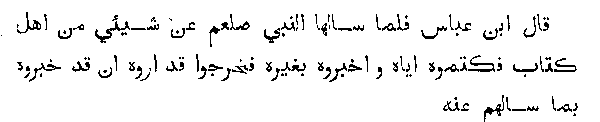 قال ابن عباس فلما سالها النبي صلعم عن شيئي من اهل
كتاب فكتموه اياه و اخبروه بغيره فخرجوا قد اروه ان قد خبروه
بما سالهم عنه